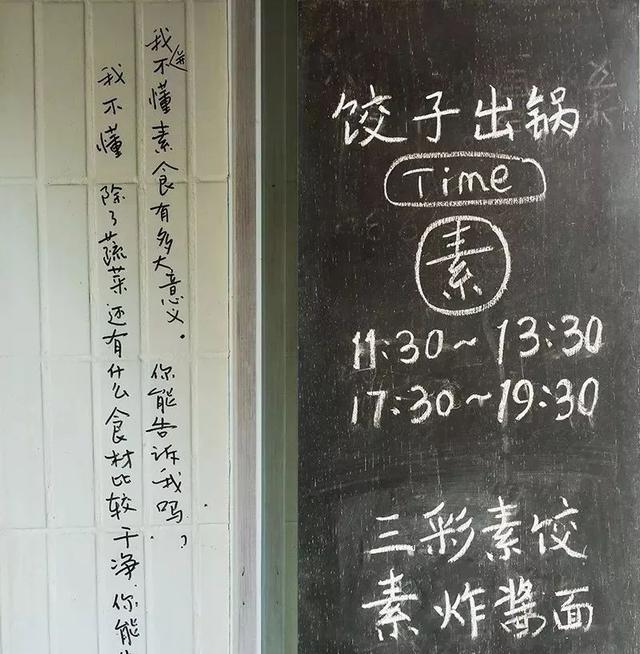 我并不懂素食有多大意义。你能告诉我吗？
我不懂 除了蔬菜还有什么食材比较干净.你能
饺子出锅
Time
素
11:30~13:30
17:30~19:30
三彩素饺
素炸酱面